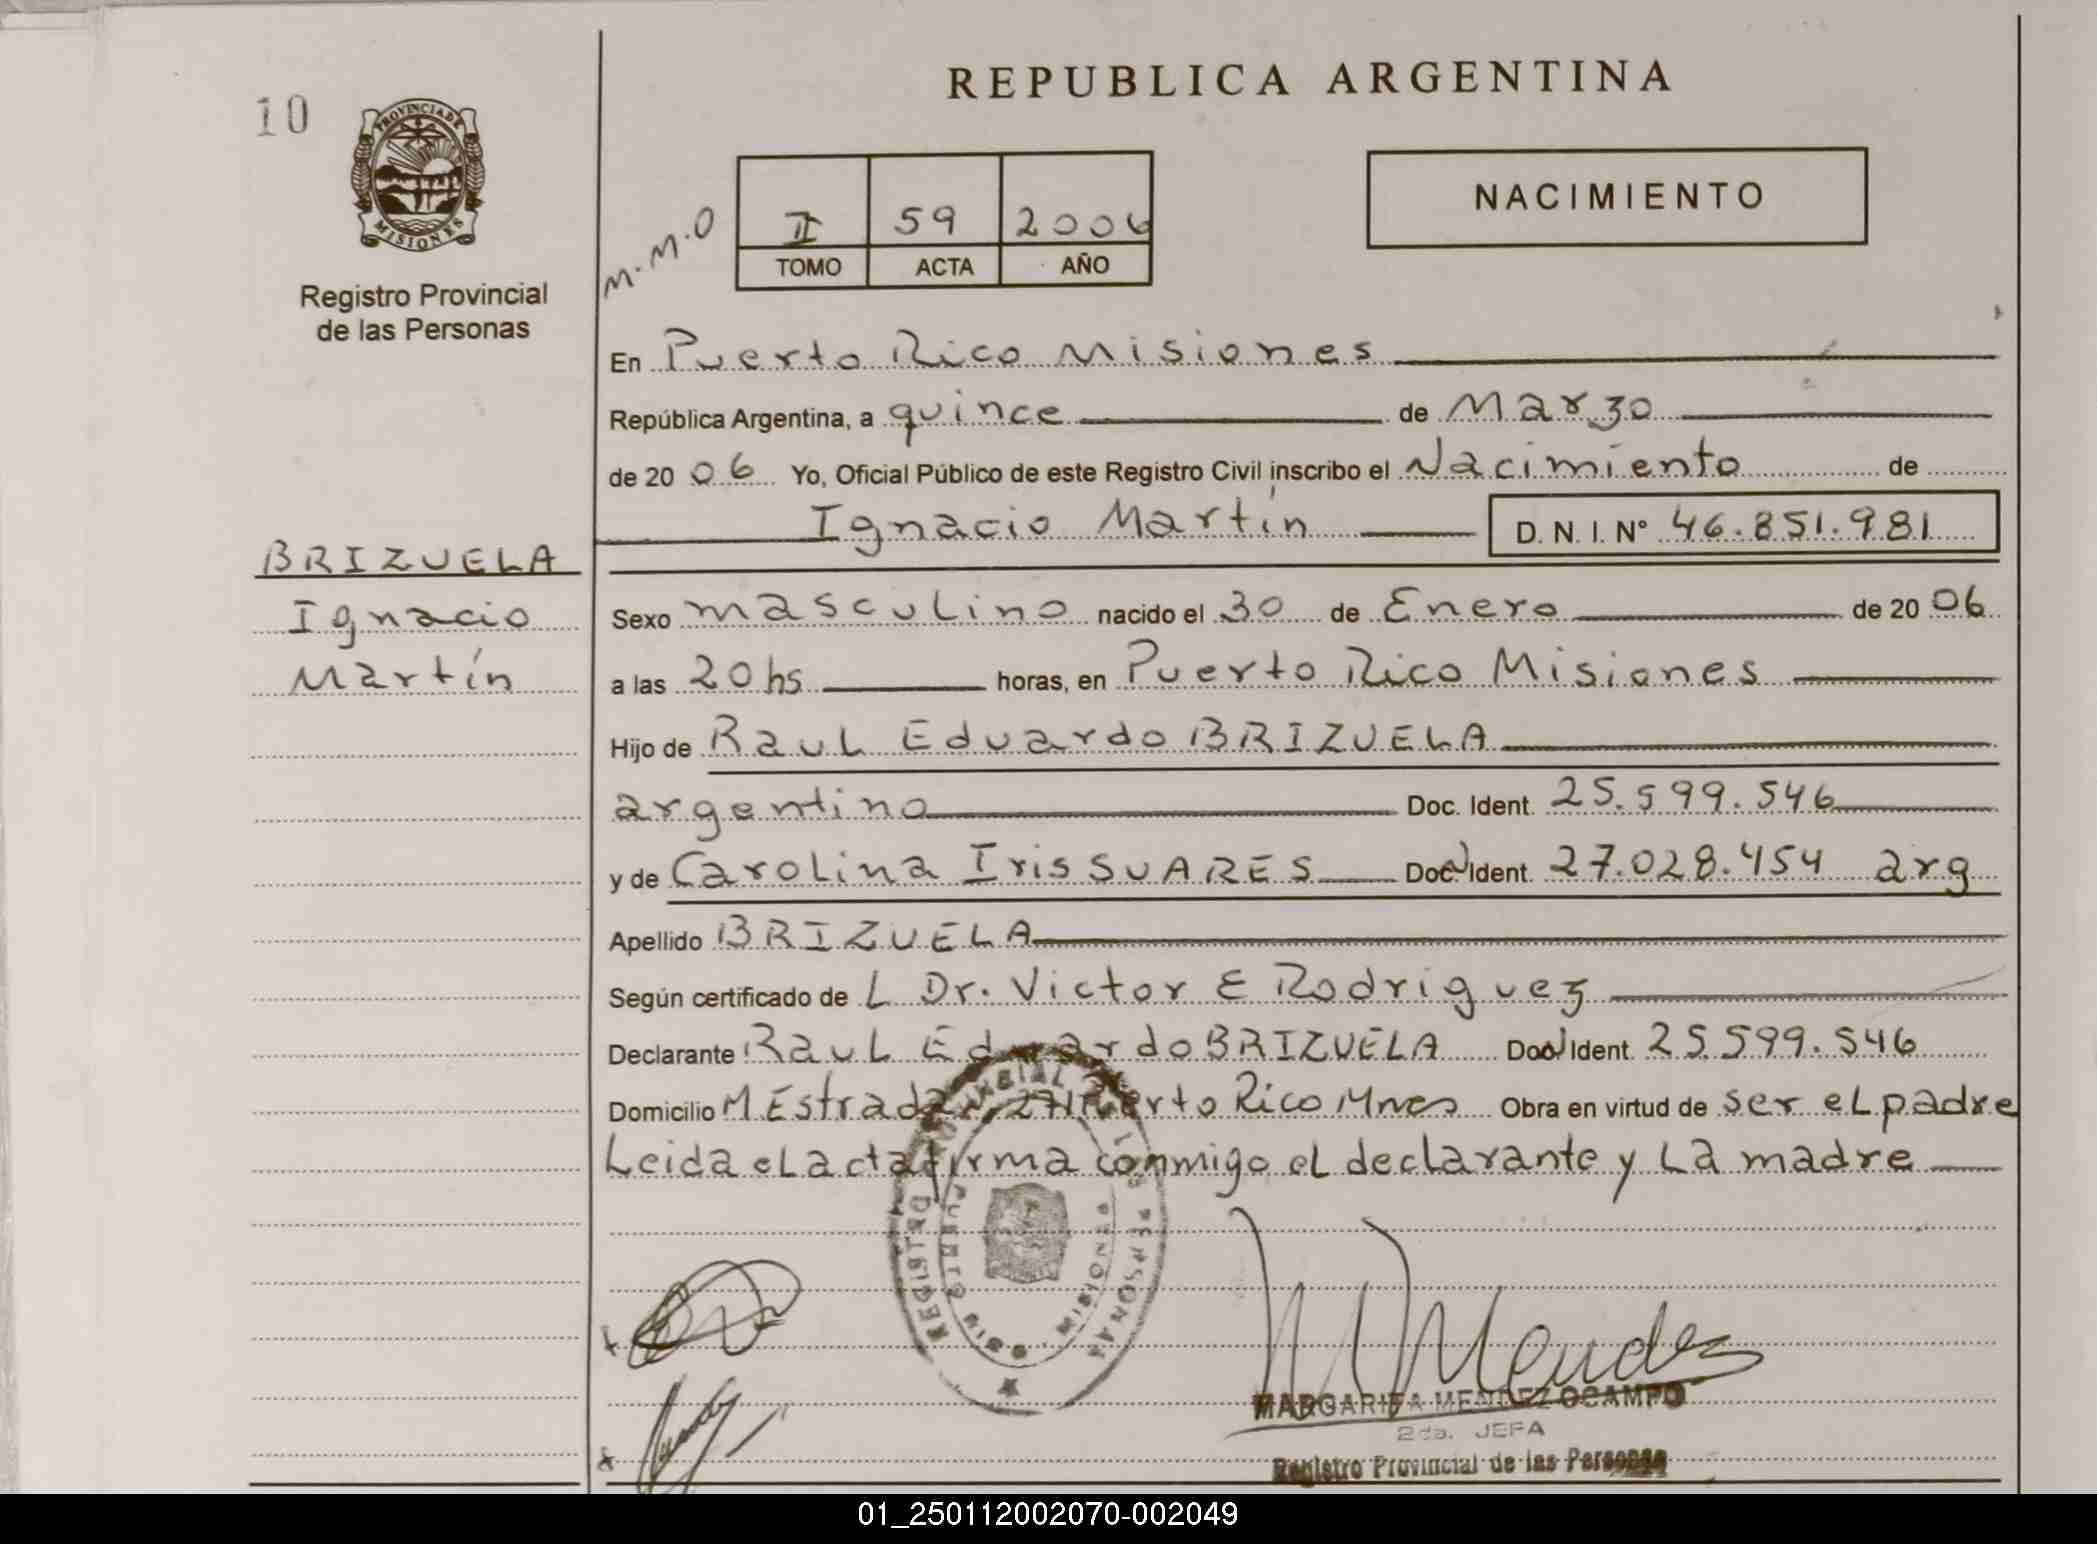 10
PROVINCIA DE
MISIONES
Registro Provincial
de las Personas
REPUBLICA ARGENTINA
NACIMIENTO
M.M.O
II 59 2006
TOMO ACTA AÑO
En Puerto Rico Misiones
República Argentina, a quince de Marzo
de 20 06 Yo, Oficial Público de este Registro Civil inscribo el Nacimiento de
Ignacio Martín D. N. I. N° 46.851.981
BRIZUELA
Ignacio
Martín
Sexo masculino nacido el 30 de Enero de 20 06
a las 20 hs horas, en Puerto Rico Misiones
Hijo de Raul Eduardo BRIZUELA
argentino Doc. Ident. 25.599.546
y de Carolina Iris SUARES Doc. Ident. 27.028.454 arg
Apellido BRIZUELA
Según certificado de L Dr. Victor E Rodriguez
Declarante Raul Eduardo BRIZUELA Doc. Ident. 25.599.546
Domicilio M Estrada Puerto Rico Mnes Obra en virtud de ser el padre
Leida el acta firma conmigo el declarante y la madre
REGISTRO PROVINCIAL PERSONAS
PUERTO RICO MISIONES
Mendez
MARGARITA MENDEZ OCAMPO
2da. JEFA
Registro Provincial de las Personas
01_250112002070-002049